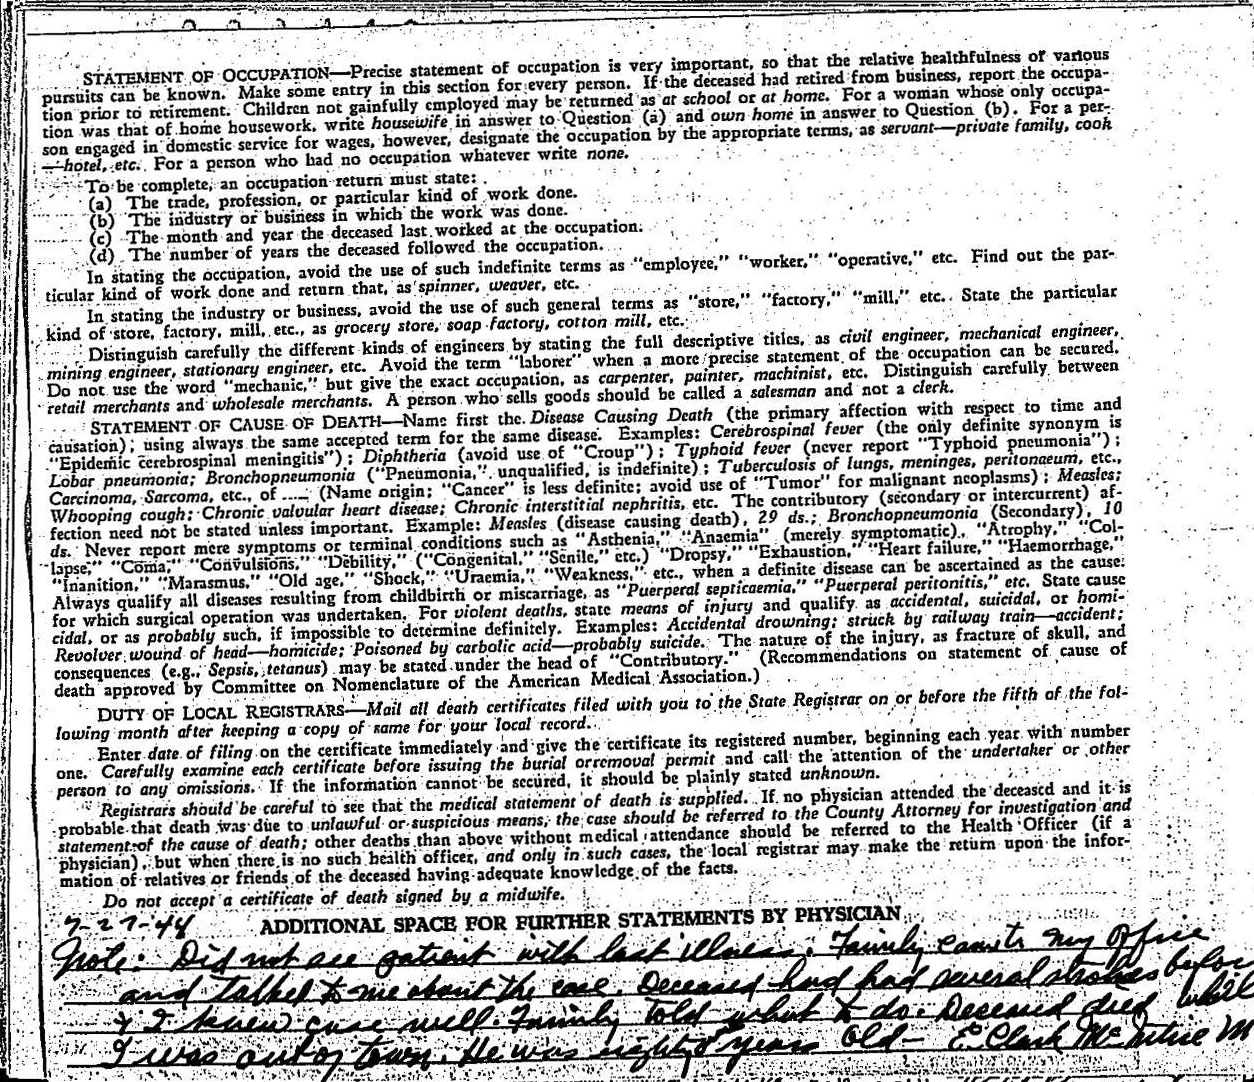 STATEMENT OF OCCUPATION—Precise statement of occupation is very important, so that the relative healthfulness of various
pursuits can be known. Make some entry in this section for every person. If the deceased had retired from business, report the occupa-
tion prior to retirement. Children not gainfully employed may be returned as at school or at home. For a woman whose only occupa-
tion was that of home housework, write housewife in answer to Question (a) and own home in answer to Question (b). For a per-
son engaged in domestic service for wages, however, designate the occupation by the appropriate terms, as servant—private family, cook
—hotel, etc. For a person who had no occupation whatever write none.
To be complete, an occupation return must state:
(a) The trade, profession, or particular kind of work done.
(b) The industry or business in which the work was done.
(c) The month and year the deceased last worked at the occupation.
(d) The number of years the deceased followed the occupation.
In stating the occupation, avoid the use of such indefinite terms as "employee," "worker," "operative," etc. Find out the par-
ticular kind of work done and return that, as spinner, weaver, etc.
In stating the industry or business, avoid the use of such general terms as "store," "factory," "mill," etc. State the particular
kind of store, factory, mill, etc., as grocery store, soap factory, cotton mill, etc.
Distinguish carefully the different kinds of engineers by stating the full descriptive titles, as civil engineer, mechanical engineer,
mining engineer, stationary engineer, etc. Avoid the term "laborer" when a more precise statement of the occupation can be secured.
Do not use the word "mechanic," but give the exact occupation, as carpenter, painter, machinist, etc. Distinguish carefully between
retail merchants and wholesale merchants. A person who sells goods should be called a salesman and not a clerk.
STATEMENT OF CAUSE OF DEATH—Name first the Disease Causing Death (the primary affection with respect to time and
causation), using always the same accepted term for the same disease. Examples: Cerebrospinal fever (the only definite synonym is
"Epidemic cerebrospinal meningitis"); Diphtheria (avoid use of "Croup"); Typhoid fever (never report "Typhoid pneumonia");
Lobar pneumonia; Bronchopneumonia ("Pneumonia," unqualified, is indefinite); Tuberculosis of lungs, meninges, peritonaeum, etc.,
Carcinoma, Sarcoma, etc., of ..... (Name origin; "Cancer" is less definite; avoid use of "Tumor" for malignant neoplasms); Measles;
Whooping cough; Chronic valvular heart disease; Chronic interstitial nephritis, etc. The contributory (secondary or intercurrent) af-
fection need not be stated unless important. Example: Measles (disease causing death), 29 ds.; Bronchopneumonia (Secondary), 10
ds. Never report mere symptoms or terminal conditions such as "Asthenia," "Anaemia" (merely symptomatic), "Atrophy," "Col-
lapse," "Coma," "Convulsions," "Debility," ("Congenital," "Senile," etc.) "Dropsy," "Exhaustion," "Heart failure," "Haemorrhage,"
"Inanition," "Marasmus," "Old age," "Shock," "Uraemia," "Weakness," etc., when a definite disease can be ascertained as the cause.
Always qualify all diseases resulting from childbirth or miscarriage, as "Puerperal septicaemia," "Puerperal peritonitis," etc. State cause
for which surgical operation was undertaken. For violent deaths, state means of injury and qualify as accidental, suicidal, or homi-
cidal, or as probably such, if impossible to determine definitely. Examples: Accidental drowning; struck by railway train—accident;
Revolver wound of head—homicide; Poisoned by carbolic acid—probably suicide. The nature of the injury, as fracture of skull, and
consequences (e.g., Sepsis, tetanus) may be stated under the head of "Contributory." (Recommendations on statement of cause of
death approved by Committee on Nomenclature of the American Medical Association.)
DUTY OF LOCAL REGISTRARS—Mail all death certificates filed with you to the State Registrar on or before the fifth of the fol-
lowing month after keeping a copy of same for your local record.
Enter date of filing on the certificate immediately and give the certificate its registered number, beginning each year with number
one. Carefully examine each certificate before issuing the burial orremoval permit and call the attention of the undertaker or other
person to any omissions. If the information cannot be secured, it should be plainly stated unknown.
Registrars should be careful to see that the medical statement of death is supplied. If no physician attended the deceased and it is
probable that death was due to unlawful or suspicious means, the case should be referred to the County Attorney for investigation and
statement of the cause of death; other deaths than above without medical attendance should be referred to the Health Officer (if a
physician), but when there is no such health officer, and only in such cases, the local registrar may make the return upon the infor-
mation of relatives or friends of the deceased having adequate knowledge of the facts.
Do not accept a certificate of death signed by a midwife.
7-27-44 ADDITIONAL SPACE FOR FURTHER STATEMENTS BY PHYSICIAN
Note: Did not see patient with last illness. Family came to my office
and talked to me about the case. Deceased had had several strokes before
& I knew case well. Family told what to do. Deceased died while
I was out of town. He was eighty 8 years old— E. Clark McIntire M